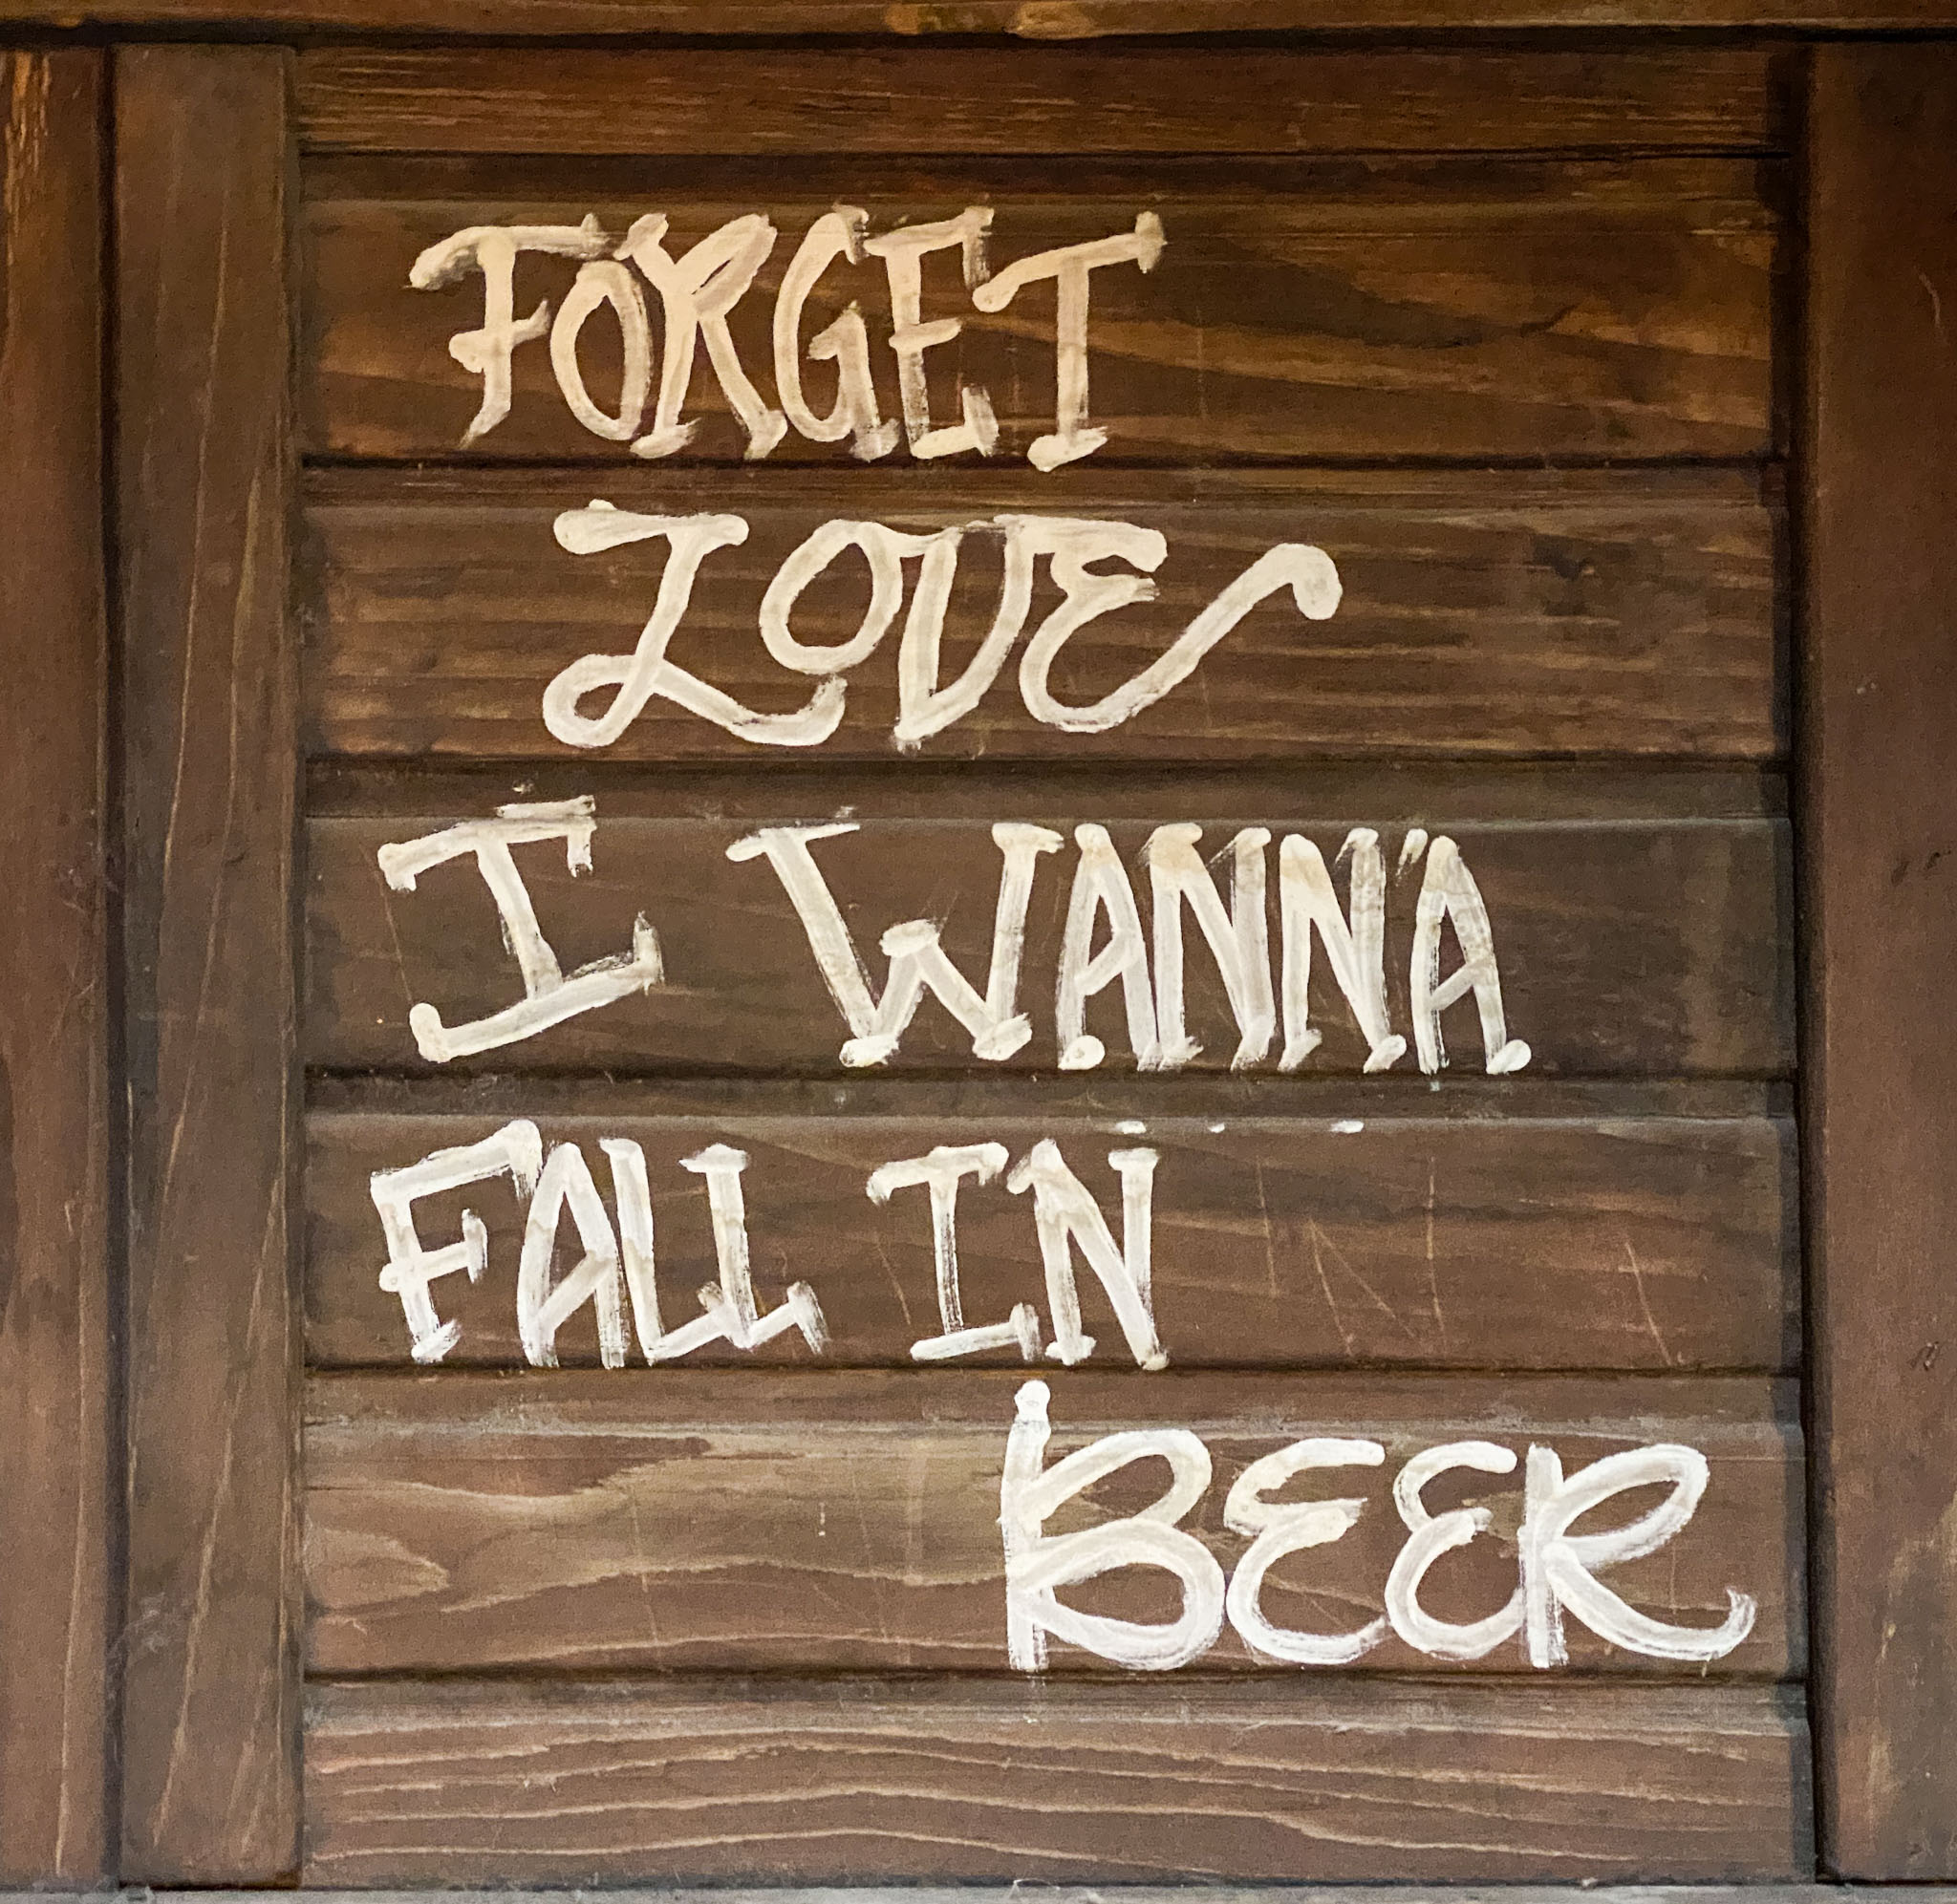 FORGET
LOVE
I WANNA
FALL IN
BEER